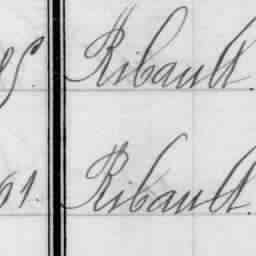 Ribault.
61. Ribault.